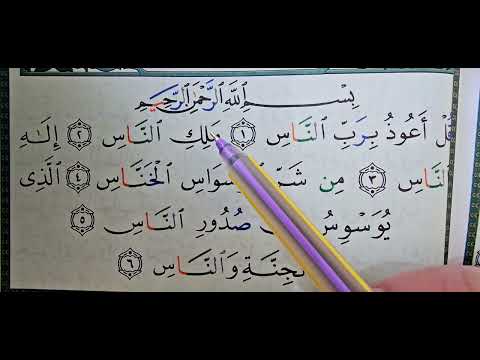 بِسْمِ ٱللَّهِ ٱلرَّحْمَٰنِ ٱلرَّحِيمِ
أَعُوذُ بِرَبِّ ٱلنَّاسِ ١ مَلِكِ ٱلنَّاسِ ٢ إِلَٰهِ
ٱلنَّاسِ ٣ مِن شَرِّ ٱلْخَنَّاسِ ٤ ٱلَّذِى
يُوَسْوِسُ صُدُورِ ٱلنَّاسِ ٥
وَٱلنَّاسِ ٦